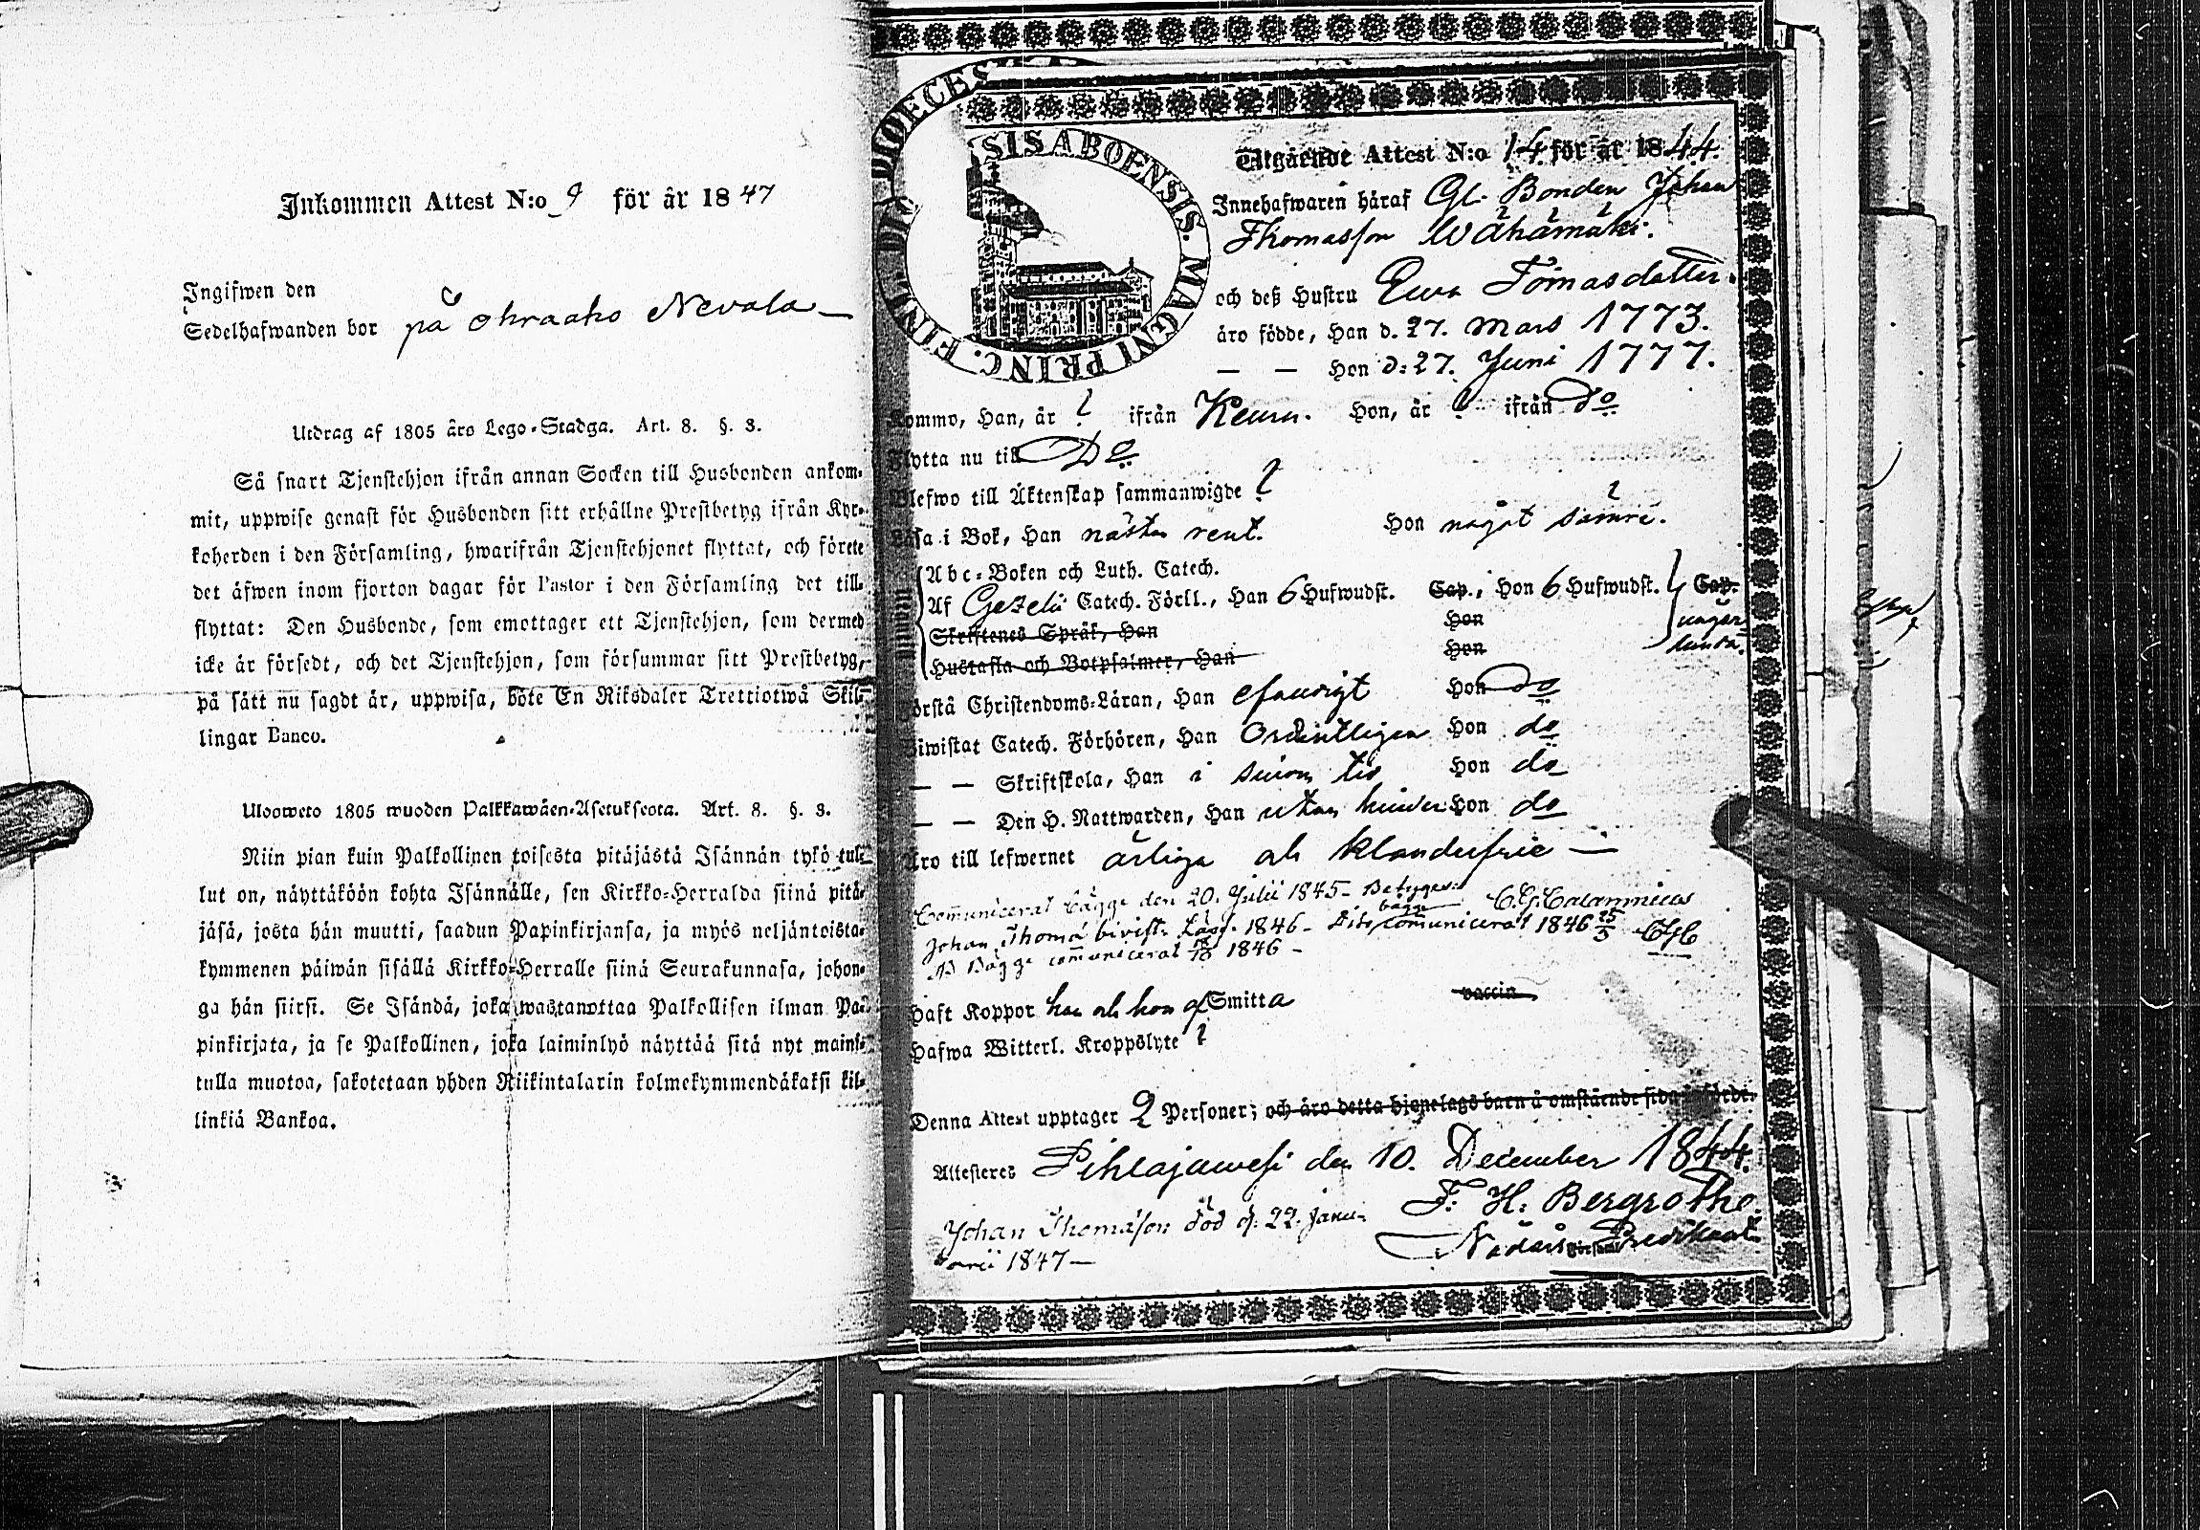 Inkommen Attest N:o 9 för år 1847
Ingifwen den
Sedelhafwanden bor på Ohraaho Nevala
Utdrag af 1805 års Lego-Stadga. Art. 8. §. 3.
Så snart Tjenstehjon ifrån annan Socken till Husbonden ankom-
mit, uppwise genast för Husbonden sitt erhållne Prestbetyg ifrån Kyr-
koherden i den Församling, hwarifrån Tjenstehjonet flyttat, och förete
det äfwen inom fjorton dagar för Pastor i den Församling det till-
flyttat: Den Husbonde, som emottager ett Tjenstehjon, som dermed
icke är försedt, och det Tjenstehjon, som försummar sitt Prestbetyg,
på sätt nu sagdt är, uppwisa, böte En Riksdaler Trettiotwå Skil-
lingar Banco.
Ulosweto 1805 wuoden Palkkawäen-Asetuksesta. Art. 8. §. 3.
Niin pian kuin Palkollinen toisesta pitäjästä Isännän tykö tul-
lut on, näyttäköön kohta Isännälle, sen Kirkko-Herralda siinä pitä-
jäsä, josta hän muutti, saadun Papinkirjansa, ja myös neljäntoista-
kymmenen päiwän sisällä Kirkko-Herralle siinä Seurakunnasa, johon-
ga hän siirsi. Se Isändä, joka wastanottaa Palkollisen ilman Pa-
pinkirjata, ja se Palkollinen, joka laiminlyö näyttää sitä nyt maini-
tulla muotoa, sakotetaan yhden Riikintalarin kolmekymmendäkaksi kil-
linkiä Bankoa.
DIOECESIS ABOENSIS. MAGNI PRINC. FINL.
Utgående Attest N:o 14 för år 1844.
Innehafwaren häraf Gl. Bonden Johan
Thomasson Wähämäki.
och deß Hustru Ewa Tomasdotter.
äro födde, Han d. 27. Mars 1773.
— — Hon d: 27. Juni 1777.
Kommo, Han, år ? ifrån Keuru. Hon, år ? ifrån do
Flytta nu till Do
Blefwo till Äktenskap sammanwigde ?
Läsa i Bok, Han nästan rent. Hon något sämre.
Abc-Boken och Luth. Catech.
Af Gezelii Catech. Förkl., Han 6 Hufwudst. Cap., Hon 6 Hufwudst. Cap.
Skriftenes Språk, Han Hon
Hustafla och Botpsalmer, Han Hon
Förstå Christendoms-Läran, Han Hon do
Biwistat Catech. Förhören, Han Ordentligen Hon do
— — Skriftskola, Han i sinom tid Hon do
— — Den H. Nattwarden, Han utan hinder Hon do
Äro till lefwernet ärliga och klanderfrie —
Communicerat bägge den 20. Julii 1845 - Betygas: C.G. Calamnius
Johan Thomas bivist. Läsf. 1846 - bägge communicerat 1846 CGC
Bägge communicerat 1846 -
Haft Koppor han och hon af Smitta vaccin
Hafwa Witterl. Kroppslyte ?
Denna Attest upptager 2 Personer; och äro detta hjonelags barn å omstående sida införde.
Attesteres Pihlajawesi den 10. December 1844.
F. H. Bergroth
Johan Thomasson död d. 22. Janu-
arii 1847 —